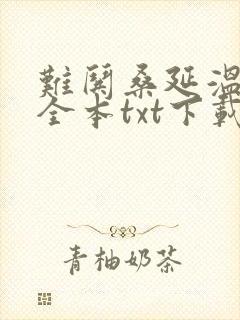 難鬨桑延溫
全本txt下載
青柚奶茶